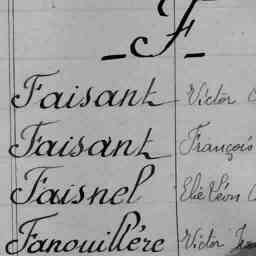 - F -
Faisant Victor
Faisant François
Faisnel Elie Léon
Fanouillère Victor